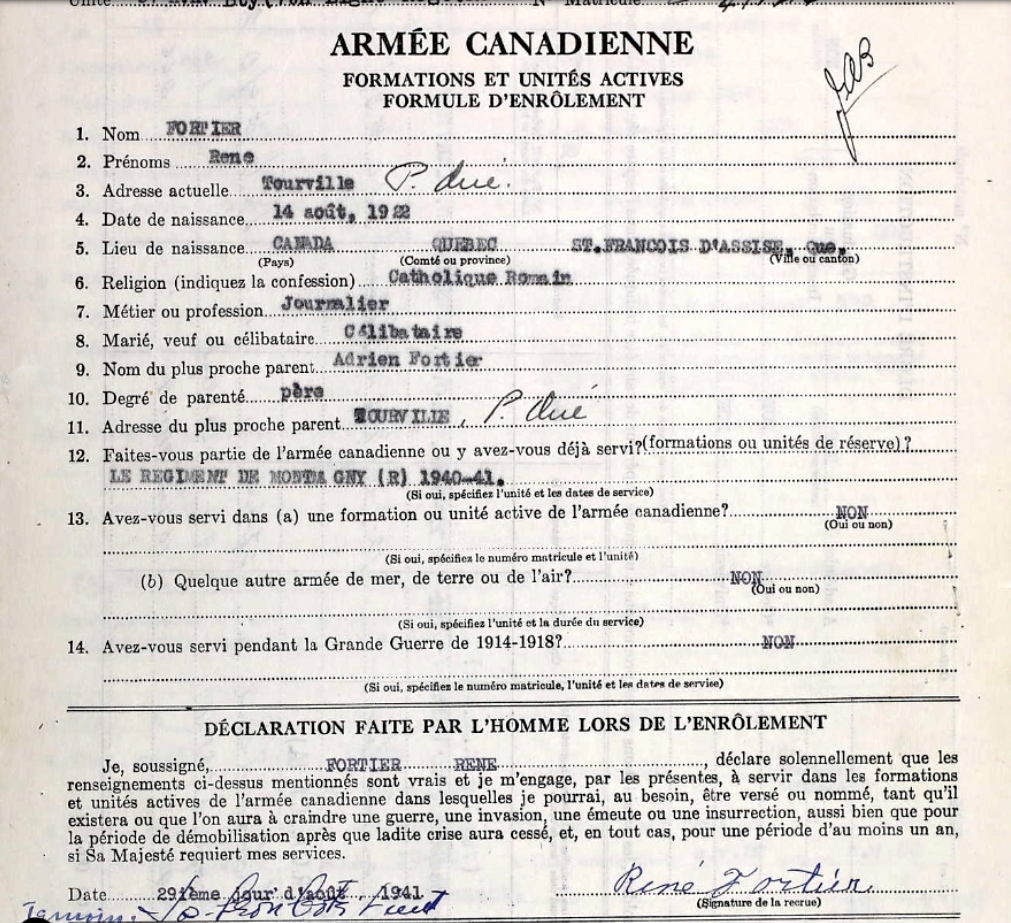 Unité N° Matricule
ARMÉE CANADIENNE
FORMATIONS ET UNITÉS ACTIVES
FORMULE D'ENRÔLEMENT
1. Nom FORTIER
2. Prénoms Rene
3. Adresse actuelle Tourville P. Qué.
4. Date de naissance 14 août, 1922
5. Lieu de naissance CANADA QUEBEC ST.FRANCOIS D'ASSISE, Que.
(Pays) (Comté ou province) (Ville ou canton)
6. Religion (indiquez la confession) Catholique Romain
7. Métier ou profession Journalier
8. Marié, veuf ou célibataire Célibataire
9. Nom du plus proche parent Adrien Fortier
10. Degré de parenté père
11. Adresse du plus proche parent TOURVILLE, P. Qué
12. Faites-vous partie de l'armée canadienne ou y avez-vous déjà servi?(formations ou unités de réserve)?
LE REGIMENT DE MONTMAGNY (R) 1940-41.
(Si oui, spécifiez l'unité et les dates de service)
13. Avez-vous servi dans (a) une formation ou unité active de l'armée canadienne? NON
(Oui ou non)
(Si oui, spécifiez le numéro matricule et l'unité)
(b) Quelque autre armée de mer, de terre ou de l'air? NON
(Oui ou non)
(Si oui, spécifiez l'unité et la durée du service)
14. Avez-vous servi pendant la Grande Guerre de 1914-1918? NON
(Si oui, spécifiez le numéro matricule, l'unité et les dates de service)
DÉCLARATION FAITE PAR L'HOMME LORS DE L'ENRÔLEMENT
Je, soussigné, FORTIER RENE, déclare solennellement que les
renseignements ci-dessus mentionnés sont vrais et je m'engage, par les présentes, à servir dans les formations
et unités actives de l'armée canadienne dans lesquelles je pourrai, au besoin, être versé ou nommé, tant qu'il
existera ou que l'on aura à craindre une guerre, une invasion, une émeute ou une insurrection, aussi bien que pour
la période de démobilisation après que ladite crise aura cessé, et, en tout cas, pour une période d'au moins un an,
si Sa Majesté requiert mes services.
Date 29ième jour d'août, 1941 René Fortier
(Signature de la recrue)
Temoin: